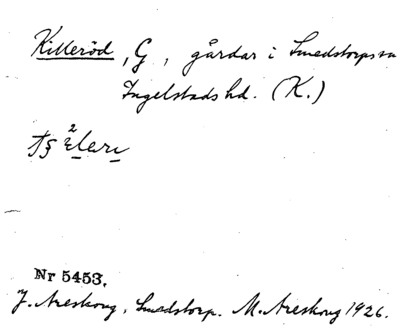 Killeröd, G, gårdar i Smedstorps sn
Ingelstads hd. (K.)
Nr 5453.
J. Areskoug, Smedstorp. M. Areskoug 1926.